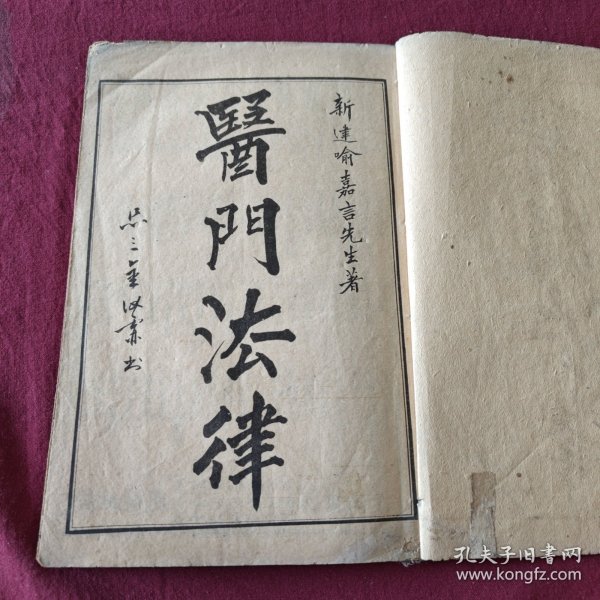 新建喻嘉言先生著
醫門法律
孔夫子旧书网
www.kongfz.com